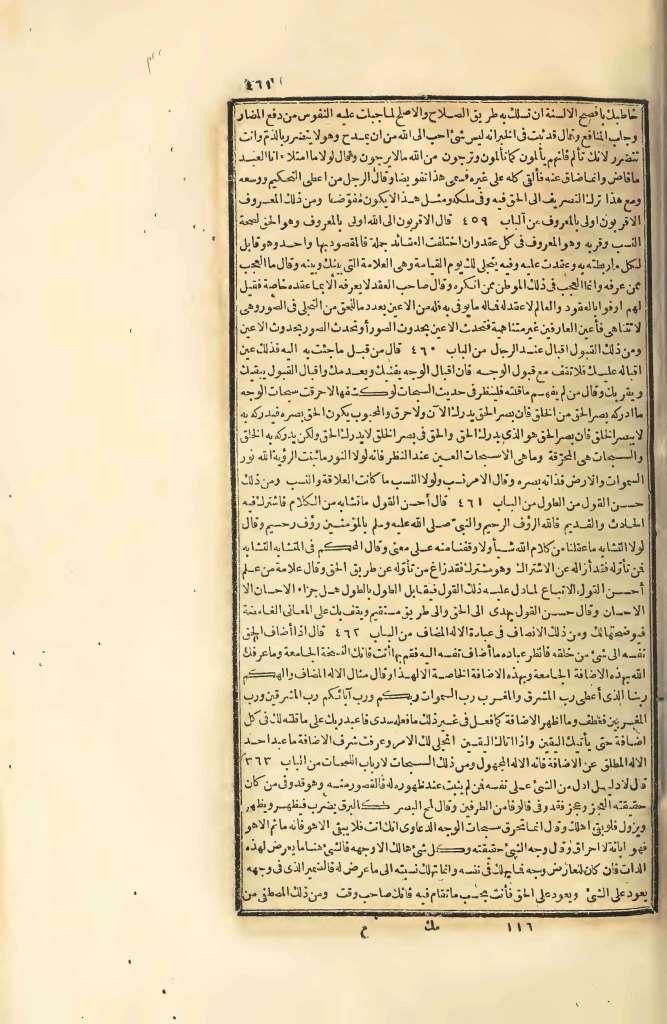 ٤٦١
خاطبك بأفصح الالسنة ان تسلك به طريق الصلاح والاصلح لما جبلت عليه النفوس من دفع المضار
وجلب المنافع وقال قد ثبت فى الخبر انه ليس شئ احب الى الله من ان يمدح وهو لا يتضرر بالذم وانت
تتضرر لانك تألم فانهم يألمون كما تألمون وترجون من الله مالا يرجون وقال لولا ما امتلاء انا العبد
ما فاض وانما ضاق عنه فألقى كله على غيره فسمى هذا تفويضا وقال الرجل من اعطى التحكيم ووسعه
ومع هذا ترك التصريف الى الحق فيه وفى ملكه ومثل هذا لا يكون مفوضا ومن ذلك المعروف
الاقربون اولى بالمعروف من الباب ٤٥٩ قال الاقربون الى الله اولى بالمعروف وهو الحق لصحة
النسب وقربه وهو المعروف فى كل عقد وان اختلفت العقائد جملة فالمقصود بها واحد وهو قابل
لكل ما ربطته به وعقدت عليه وفيه يتجلى لك يوم القيامة وهى العلامة التى بينك وبينه وقال ما العجب
ممن عرفه وانما العجب فى ذلك الموطن ممن انكره وقال صاحب العقد لا يعرفه الا بما عقده خاصة فقيل
لهم اوفوا بالعقود والعالم لا عقد له فماله ما يوفى به فله من الاعين بعدد ما للحق من التجلى فى الصور وهى
لا تتناهى فأعين العارفين غير متناهية فتحدث الاعين بحدوث الصور أو تحدث الصور بحدوث الاعين
ومن ذلك القبول اقبال عند الرجل من الباب ٤٦٠ قال من قبل ما جئت به اليه فذلك عين
اقباله عليك فلا تقف مع قبول الوجه فان اقبال الوجه يفنيك ويعدمك واقبال القبول يبقيك
ويقربك وقال من لم يفهم ما قلته فلينظر فى حديث السبحات لو كشفها لاحرقت سبحات الوجه
ما ادركه بصر الحق من الخلق فان بصر الحق يدرك الآن ولا حرق والمحبوب يكون الحق بصره فيدركه به
لا ببصر الخلق فان بصر الحق هو الذى يدرك الحق والحق فى بصر الخلق لا يدرك الحق ولكن يدرك به الخلق
والسبحات هى المحرقة وما هى الا سبحات العين عند النظر فانه لولا النور ما ثبتت الرؤية الله نور
السموات والارض فذاته بصره وقال الامر نسب ولولا النسب ما كانت العلاقة والنسب ومن ذلك
حسن القول من الطول من الباب ٤٦١ قال أحسن القول ما تشابه من الكلام فاشترك فيه
الحادث والقديم فالله الرؤف الرحيم والنبى صلى الله عليه وسلم بالمؤمنين رؤف رحيم وقال
لولا التشابه ما عقلنا من كلام الله شيأ ولا وقفنا منه على معنى وقال المحكم فى المتشابه التشابه
فمن تأوله فقد أزاله عن الاشتراك وهو مشترك فقد زاغ من تأوله عن طريق الحق وقال علامة من علم
أحسن القول الاتباع لما دل عليه ذلك القول فيقابل الطول بالطول هل جزاء الاحسان الا
الاحسان وقال حسن القول يهدى الى الحق والى طريق مستقيم ويقفك على المعانى الغامضة
فيوضحها لك ومن ذلك الانصاف فى عبادة الاله المضاف من الباب ٤٦٢ قال اذا أضاف الحق
نفسه الى شئ من خلقه فانظر عباده ما أضاف نفسه اليه فقم بها أنت فانك النسخة الجامعة وما عرفك
الله بهذه الاضافة الجامعة وبهذه الاضافة الخاصة الا لهذا وقال مثال الاله المضاف والهكم
ربنا الذى أعطى رب المشرق والمغرب رب السموات ربكم ورب آبائكم رب المشرقين ورب
المغربين فعطف وما اظهر الاضافة كما فعل فى غير ذلك ما فعله سدى فاعبد ربك على ما قلته لك فى كل
اضافة حتى يأتيك اليقين واذا اتاك اليقين انجلى لك الامر وعرفت شرف الاضافة ما عبد احد
الاله المطلق عن الاضافة فانه الاله المجهول ومن ذلك السبحات لارباب اللمحات من الباب ٣٦٣
قال لا دليل ادل من الشئ على نفسه فمن لم يثبت عند ظهوره له فالقصور منه وهو قد وفى من كان
حقيقته العجز وعجز فقد وفى فالوفا من الطرفين وقال لمح البصر كالبرق يضرب فيظهر ويظهر
ويزول فلو بقى اهلك وقال انما تحرق سبحات الوجه الدعاوى انك انت فلا يبقى الا هو فانه ما ثم الا هو
فهو ابانة لا احراق وقال وجه الشئ حقيقته وكل شئ هالك الا وجهه فالشئ هنا ما يعرض لهذه
الذات فان كان للعارض وجه فما يهلك فى نفسه وانما تهلك نسبته الى ما عرض له فالضمير الذى فى وجهه
يعود على الشئ ويعود على الحق فأنت بحسب ما تقام فيه فانك صاحب وقت ومن ذلك المصطفى من
١١٦ مك ع